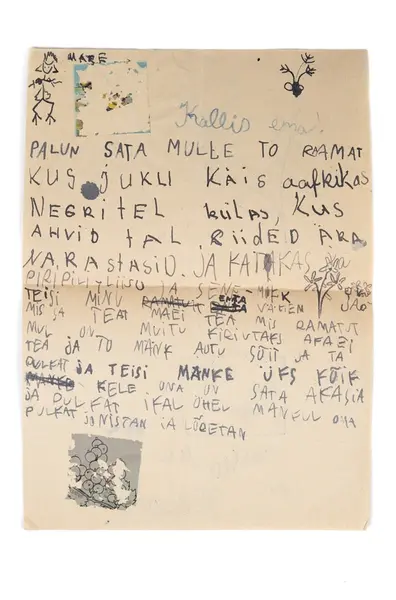 MARE
Kallis ema!
PALUN SATA MULLE TO RAAMAT
KUS JUKLI KÄIS aafrikas
NEGRITEL külas, KUS
AHVID TAL RIIDED ÄRA
NARASTASID. JA KATKAS
PIRIPILLI LIISU JA SENE-MIKK
TEISI MINU
MIS SA TEAT MAEI TEA MIS RAMATUT
MUL ON MUITU KIRIUTAKS
TEA JA TO MÄNK AUTU SÕIT JA TA
PULKAT JA TEISI MÄNKE ÜKS KÕIK
KELE OMA ON SATA AKASIA
JA PULKAT IKAL ÜHEL MÄNKUL OMA
PULKAT ja NISTAN JA LÕPETAN